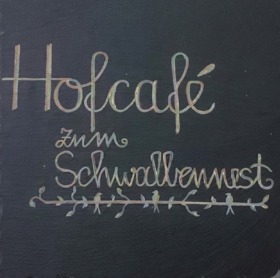 Hofcafé
zum
Schwalbennest